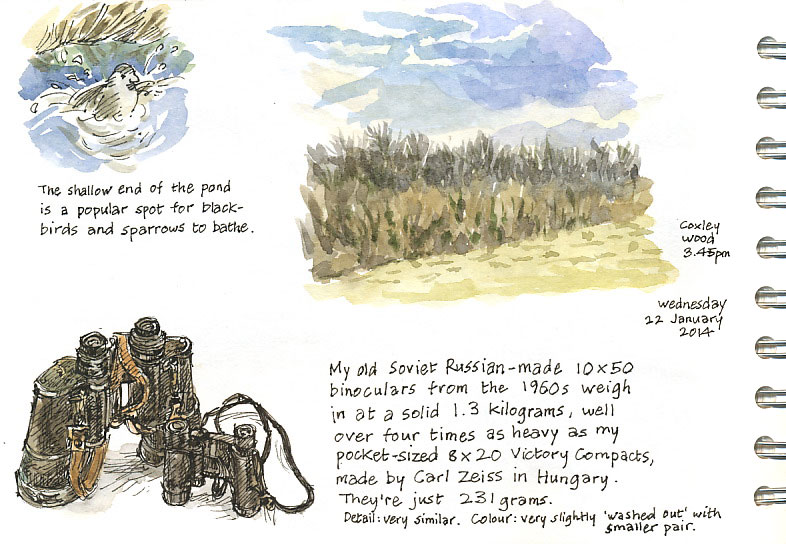 The shallow end of the pond
is a popular spot for black-
birds and sparrows to bathe.
Coxley
wood
3.45pm
wednesday
22 January
2014
My old Soviet Russian-made 10×50
binoculars from the 1960s weigh
in at a solid 1.3 kilograms, well
over four times as heavy as my
pocket-sized 8×20 Victory Compacts,
made by Carl Zeiss in Hungary.
They're just 231 grams.
Detail: very similar. Colour: very slightly 'washed out' with
smaller pair.